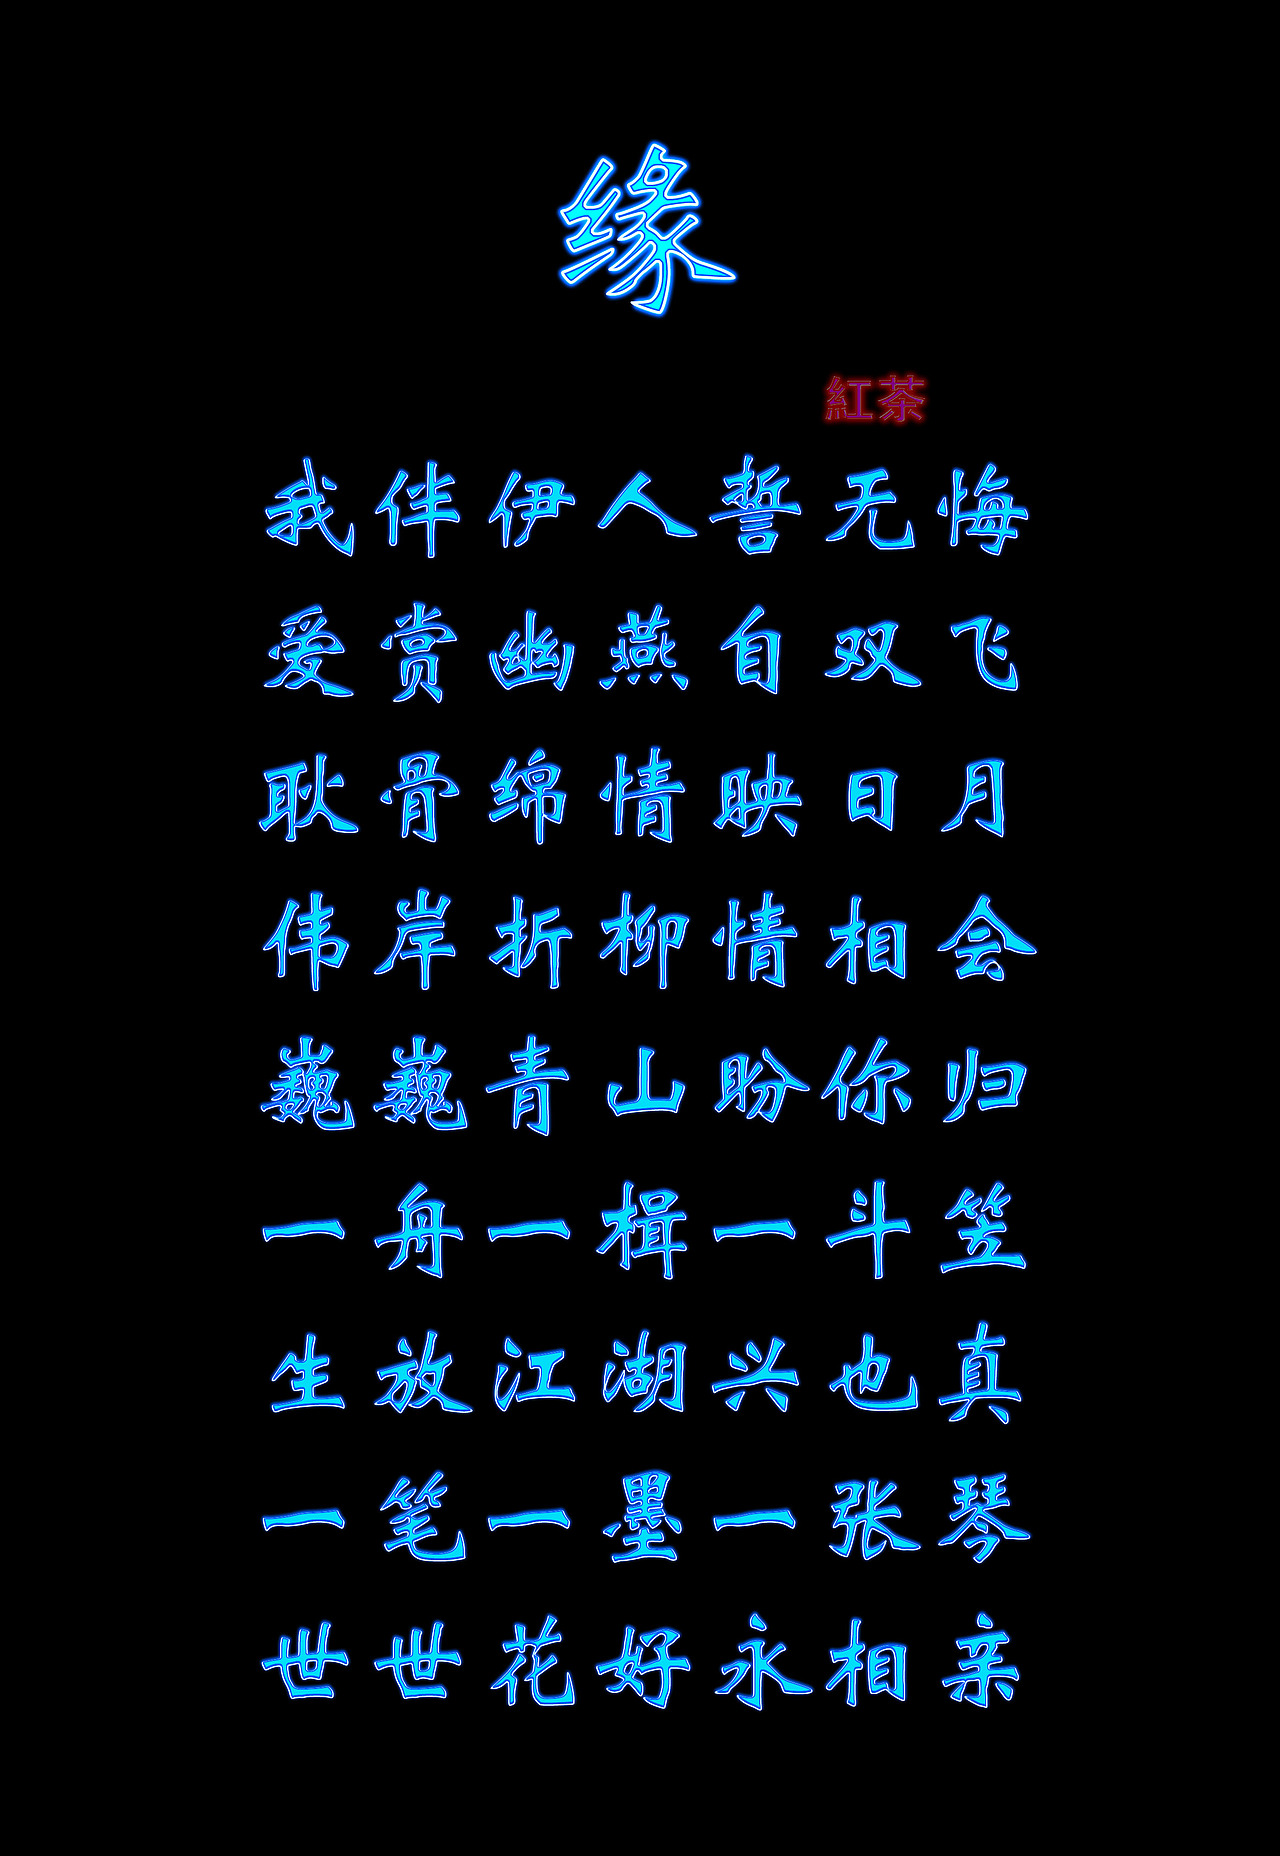 缘
紅茶
我伴伊人誓无悔
爱赏幽燕自双飞
耿骨绵情映日月
伟岸折柳情相会
巍巍青山盼你归
一舟一楫一斗笠
生放江湖兴也真
一笔一墨一张琴
世世花好永相亲